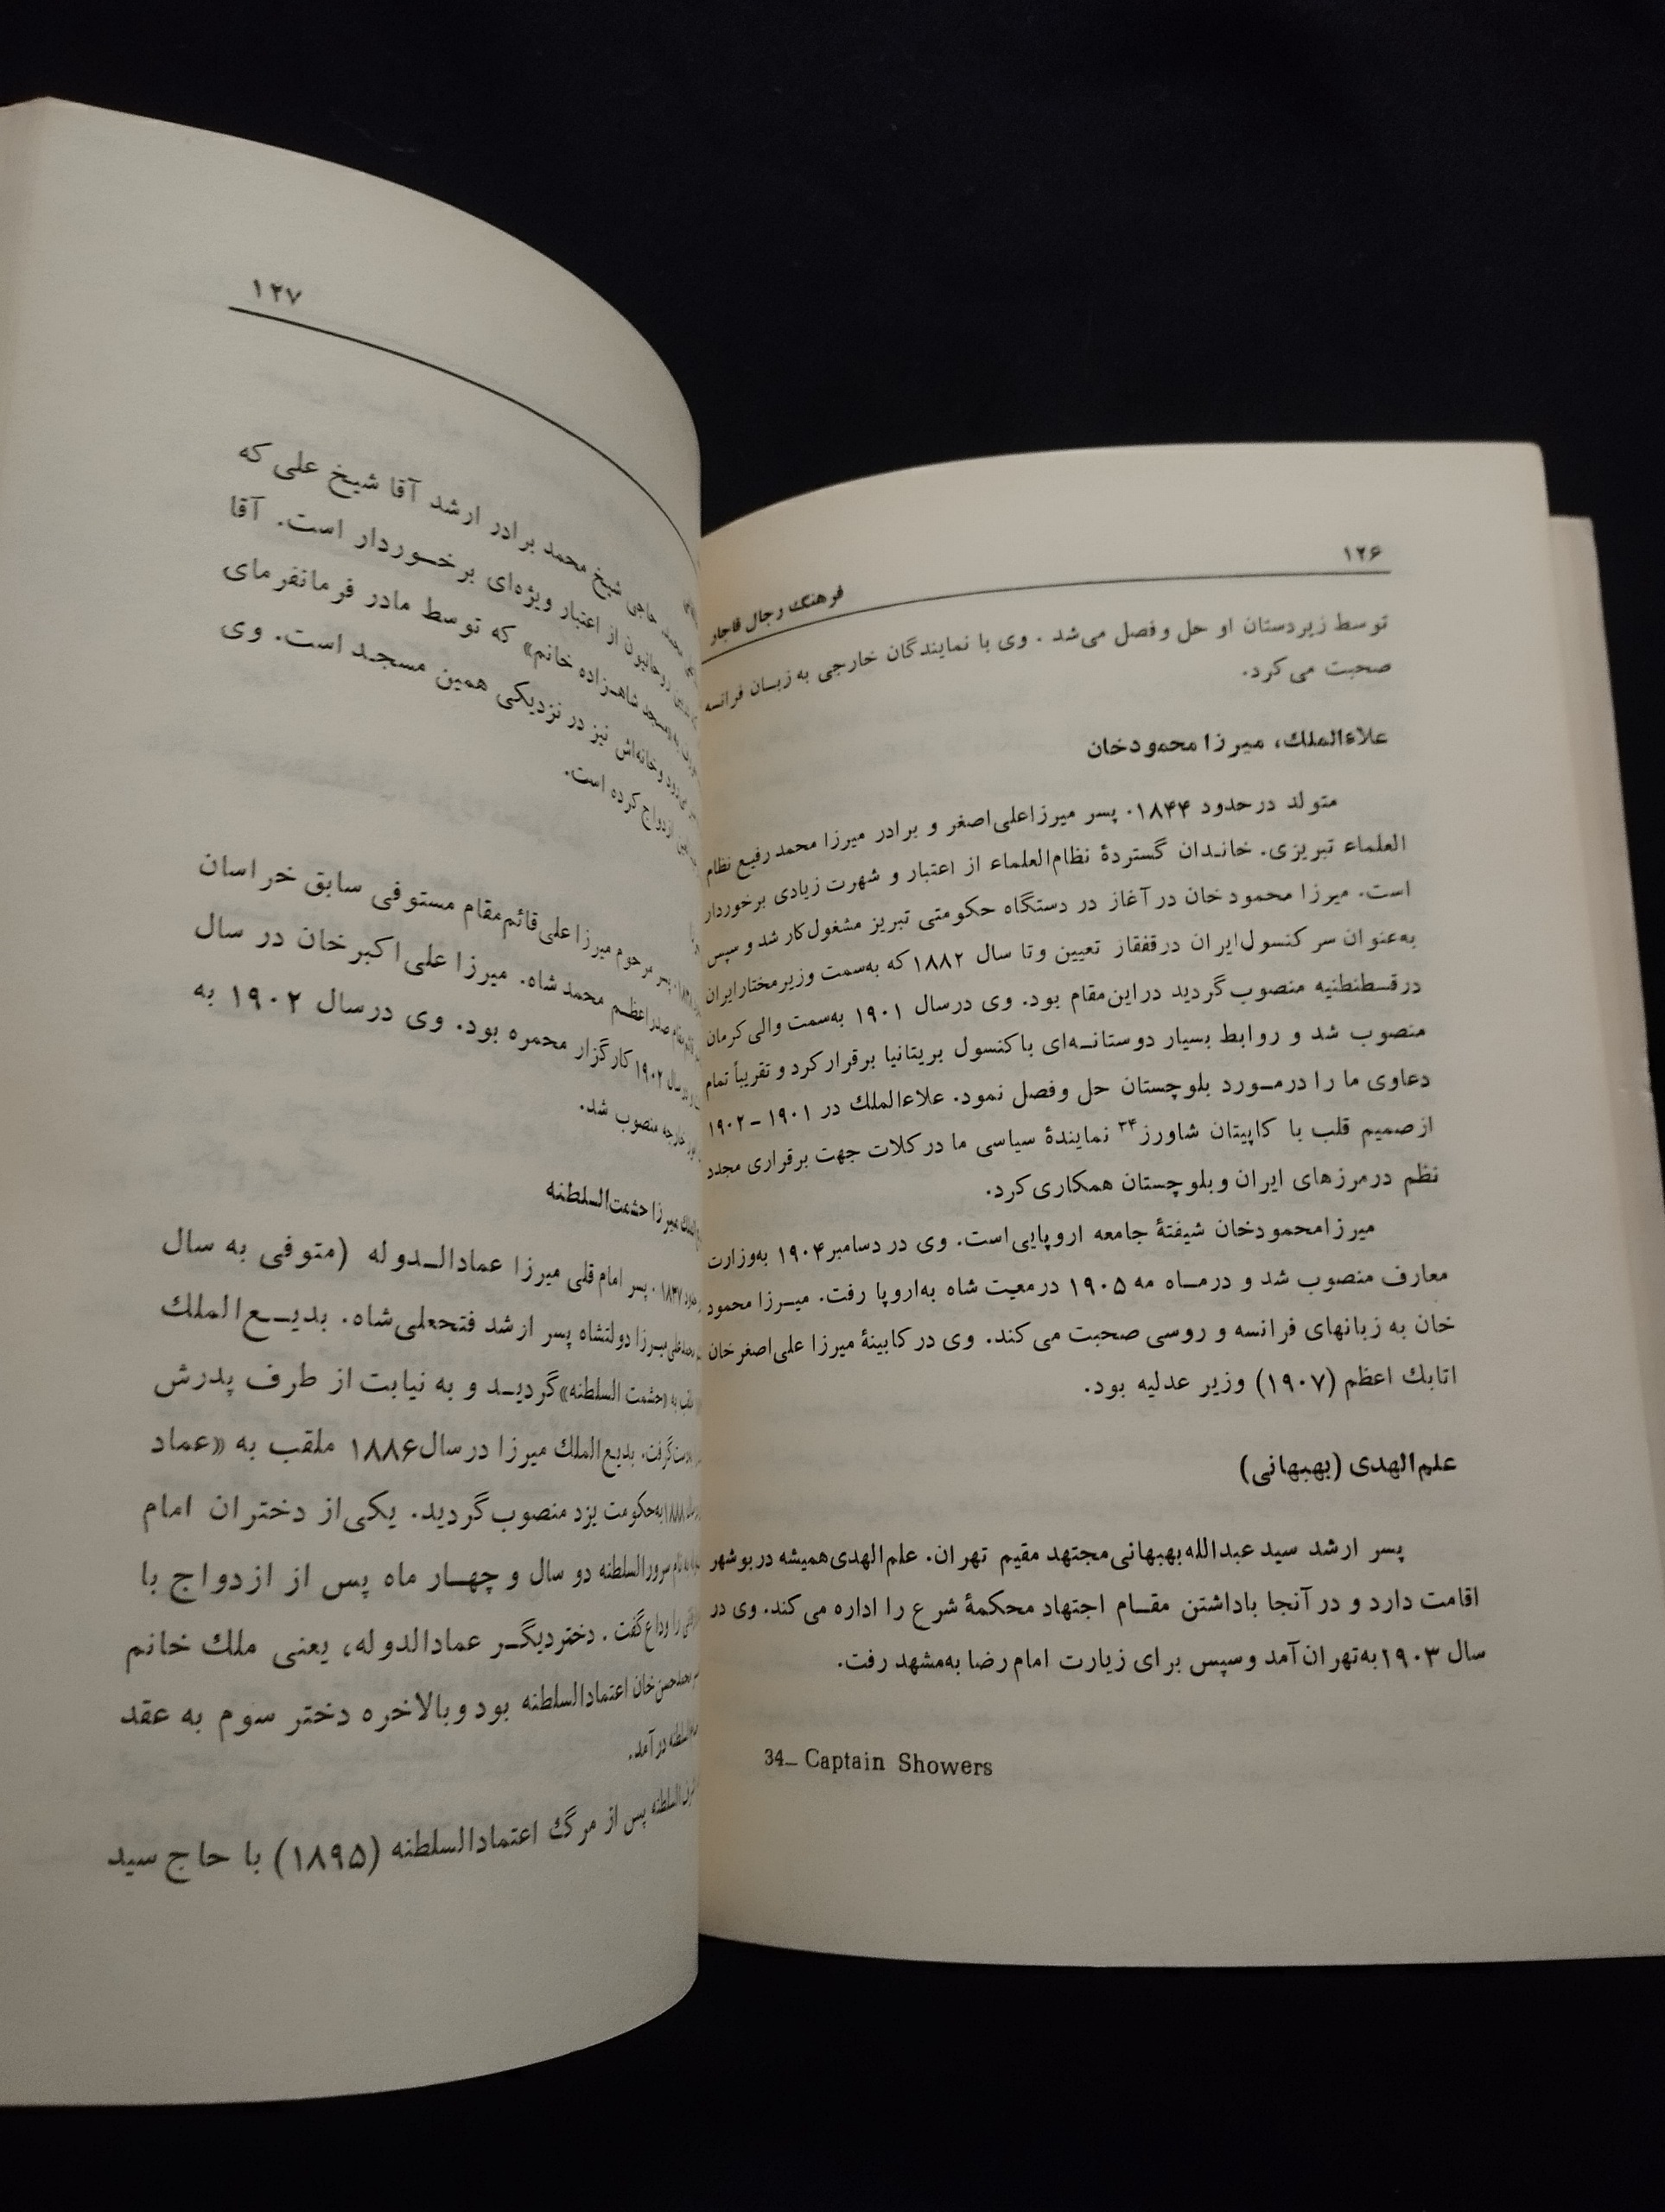 ۱۲۶
فرهنگ رجال قاجار
توسط زیردستان او حل وفصل می‌شد . وی با نمایندگان خارجی به زبان فرانسه
صحبت می‌کرد.
علاءالملك، میرزا محمودخان
متولد درحدود ۱۸۴۴. پسر میرزاعلی‌اصغر و برادر میرزا محمد رفیع نظام
العلماء تبریزی. خاندان گستردهٔ نظام‌العلماء از اعتبار و شهرت زیادی برخوردار
است. میرزا محمودخان در آغاز در دستگاه حکومتی تبریز مشغول‌کار شد و سپس
به‌عنوان سرکنسول‌ایران درقفقاز تعیین وتا سال ۱۸۸۲ که به‌سمت وزیرمختارایران
درقسطنطنیه منصوب‌گردید دراین‌مقام بود. وی درسال ۱۹۰۱ به‌سمت والی‌کرمان
منصوب شد و روابط بسیار دوستانــه‌ای باکنسول بریتانیا برقرارکرد و تقریباً تمام
دعاوی ما را درمــورد بلوچستان حل وفصل نمود. علاءالملك در ۱۹۰۱ – ۱۹۰۲
ازصمیم قلب با کاپیتان شاورز۳۴ نمایندهٔ سیاسی ما درکلات جهت برقراری مجدد
نظم درمرزهای ایران وبلوچستان همکاری‌کرد.
میرزامحمودخان شیفتهٔ جامعه اروپایی‌است. وی در دسامبر۱۹۰۴ به‌وزارت
معارف منصوب شد و درمــاه مه ۱۹۰۵ درمعیت شاه به‌اروپا رفت. میــرزا محمود
خان به زبانهای فرانسه و روسی صحبت می‌کند. وی درکابینهٔ میرزا علی‌اصغرخان
اتابك اعظم (۱۹۰۷) وزیر عدلیه بود.
علم‌الهدی (بهبهانی)
پسر ارشد سید عبدالله‌بهبهانی‌مجتهد مقیم تهران. علم‌الهدی‌همیشه دربوشهر
اقامت دارد و درآنجا باداشتن مقــام اجتهاد محکمهٔ شرع را اداره می‌کند. وی در
سال ۱۹۰۳به‌تهران‌آمد وسپس برای زیارت امام‌رضا به‌مشهد رفت.
34– Captain Showers
۱۲۷
حاجی شیخ محمد برادر ارشد آقا شیخ علی که
روحانیون از اعتبار ویژه‌ای برخــوردار است. آقا
«مسجد شاهــزاده خانم» که توسط مادر فرمانفرمای
وخانه‌اش نیز در نزدیکی همین مسجــد است. وی
ازدواج کرده است.
پسر مرحوم میرزا علی‌قائم‌مقام مستوفی سابق خراسان
صدراعظــم محمدشاه. میرزا علی‌اکبرخان در سال
۱۹۰۲ کارگزار محمره بود. وی درسال ۱۹۰۲ به
خارجه منصوب شد.
میرزا حشمت‌السلطنه
۱۸۳۷. پسر امام قلی میرزا عمادالــدوله (متوفی به سال
محمدعلی‌میــرزا دولتشاه پسر ارشد فتحعلی‌شاه. بدیــع‌الملك
به «حشمت السلطنه»گردیــد و به نیابت از طرف پدرش
گرفت. بدیع‌الملك میرزا درسال۱۸۸۶ ملقب به «عماد
۱۸۸۸به‌حکومت یزد منصوب‌گردید. یکی‌از دختران امام
سرورالسلطنه دو سال و چهــار ماه پس از ازدواج با
را وداع‌گفت. دختردیگــر عمادالدوله، یعنی ملك خانم
محمدحسن‌خان اعتمادالسلطنه بود وبالاخره دختر سوم به عقد
درآمد.
پس از مرگ اعتمادالسلطنه (۱۸۹۵) با حاج سید